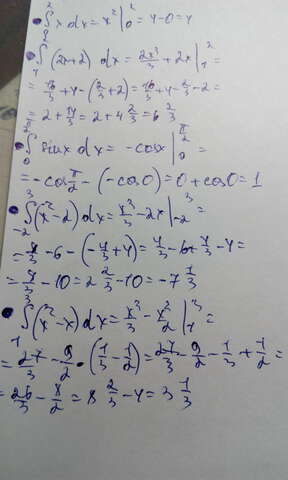 • ∫₀² x dx = x² |₀² = 4 - 0 = 4
• ∫₁² (2x + 2) dx = 2x³/3 + 2x |₁² =
= 16/3 + 4 - (2/3 + 2) = 16/3 + 4 - 2/3 - 2 =
= 2 + 14/3 = 2 + 4 2/3 = 6 2/3
• ∫₀ sinx dx = -cosx |₀^(π/2) =
= -cos π/2 - (-cos0) = 0 + cos0 = 1
• ∫₋₂³ (x² - 2) dx = x³/3 - 2x |₋₂³ =
- 6 - ( + 4) = - 6 - 4 =
- 10 = 2 2/3 - 10 = -7 1/3
• ∫₁³ (x² - x) dx = x³/3 - x²/2 |₁³ =
= 27/3 - 9/2 - (1/3 - 1/2) = 27/3 - 9/2 - 1/3 + 1/2 =
= 26/3 - 8/2 = 8 2/3 - 4 = 3 1/3